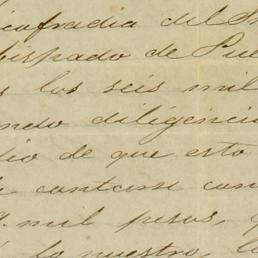 icofradia del
bispado de Pue
los seis mil
ndo diligencia
dio de que esto
cantase can
mil pesos,
lo nuestro,